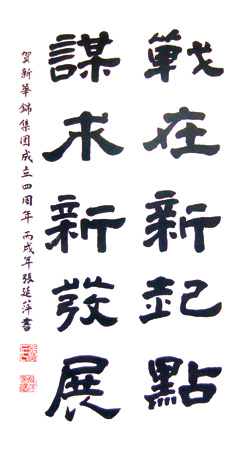 戰在新起點
謀求新發展
賀新華錦集团成立四周年 丙戌年張延萍書